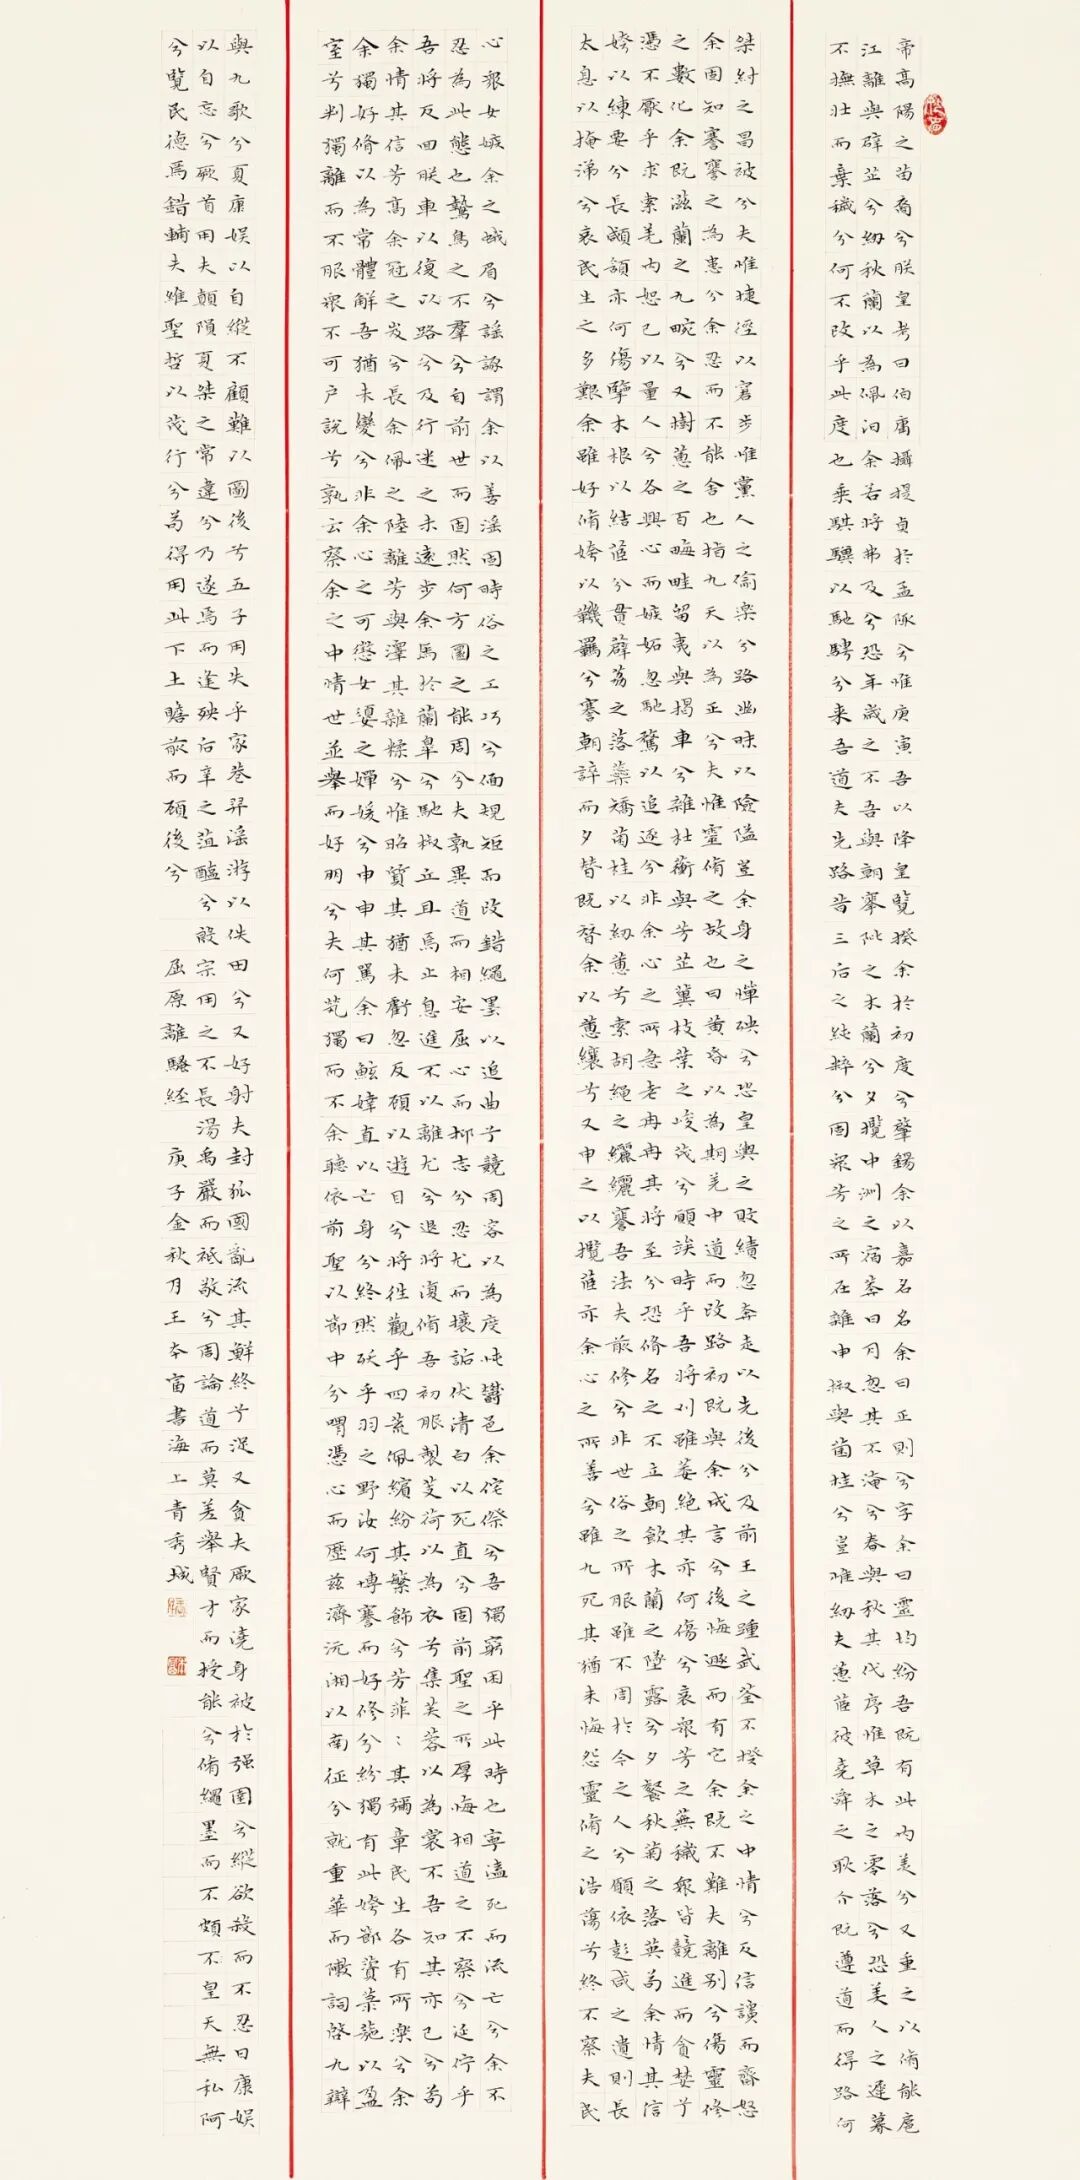 帝高陽之苗裔兮朕皇考曰伯庸攝提貞於孟陬兮惟庚寅吾以降皇覽揆余於初度兮肇錫余以嘉名名余曰正則兮字余曰靈均紛吾既有此內美兮又重之以脩能扈
江離與辟芷兮紉秋蘭以為佩汩余若將弗及兮恐年歲之不吾與朝搴阰之木蘭兮夕攬中洲之宿莽日月忽其不淹兮春與秋其代序惟草木之零落兮恐美人之遲暮
不撫壯而棄穢兮何不改乎此度也乘騏驥以馳騁兮来吾道夫先路昔三后之純粹兮固眾芳之所在雜申椒與菌桂兮豈唯紉夫蕙茝彼堯舜之耿介既遵道而得路何
桀紂之昌被兮夫唯捷徑以窘步惟黨人之偷樂兮路幽昧以險隘豈余身之憚殃兮恐皇輿之敗績忽奔走以先後兮及前王之踵武荃不揆余之中情兮反信讒而齌怒
余固知謇謇之為患兮余忍而不能舍也指九天以為正兮夫惟靈脩之故也曰黃昏以為期羌中道而改路初既與余成言兮後悔遯而有它余既不難夫離別兮傷靈修
之數化余既滋蘭之九畹兮又樹蕙之百畮畦留夷與揭車兮雜杜蘅與芳芷冀枝葉之峻茂兮願竢時乎吾將刈雖萎絕其亦何傷兮哀眾芳之蕪穢眾皆競進而貪婪兮
憑不厭乎求索羌內恕己以量人兮各興心而嫉妬忽馳騖以追逐兮非余心之所急老冉冉其將至兮恐脩名之不立朝飲木蘭之墜露兮夕餐秋菊之落英苟余情其信
姱以練要兮長顑頷亦何傷擥木根以結茝兮貫薜荔之落蘂矯菌桂以紉蕙兮索胡繩之纚纚謇吾法夫前修兮非世俗之所服雖不周於今之人兮願依彭咸之遺則長
太息以掩涕兮哀民生之多艱余雖好脩姱以鞿羈兮謇朝誶而夕替既替余以蕙纕兮又申之以攬茝亦余心之所善兮雖九死其猶未悔怨靈脩之浩蕩兮終不察夫民
心眾女嫉余之娥眉兮謠諑謂余以善淫固時俗之工巧兮偭規矩而改錯繩墨以追曲兮競周容以為度忳鬱邑余侘傺兮吾獨窮困乎此時也寧溘死而流亡兮余不
忍為此態也鷙鳥之不羣兮自前世而固然何方圜之能周兮夫孰異道而相安屈心而抑志兮忍尤而攘詬伏清白以死直兮固前聖之所厚悔相道之不察兮延佇乎
吾將反回朕車以復路兮及行迷之未遠步余馬於蘭皋兮馳椒丘且焉止息進不以離尤兮退將復脩吾初服製芰荷以為衣兮集芙蓉以為裳不吾知其亦已兮苟
余情其信芳高余冠之岌兮長余佩之陸離芳與澤其雜糅兮惟昭質其猶未虧忽反顧以遊目兮將往觀乎四荒佩繽紛其繁飾兮芳菲:其彌章民生各有所樂兮余
余獨好脩以為常體解吾猶未變兮非余心之可懲女嬃之嬋媛兮申申其詈余曰鮌婞直以亡身兮終然殀乎羽之野汝何博謇而好修兮紛獨有此姱節薋菉葹以盈
室兮判獨離而不服眾不可戶說兮孰云察余之中情世並舉而好朋兮夫何煢獨而不余聽依前聖以節中兮喟憑心而歷茲濟沅湘以南征兮就重華而敶詞啓九辯
與九歌兮夏康娛以自縱不顧難以圖後兮五子用失乎家巷羿淫游以佚田兮又好射夫封狐國亂流其鮮終兮浞又貪夫厥家澆身被於強圉兮縱欲殺而不忍日康娛
以自忘兮厥首用夫顛隕夏桀之常違兮乃遂焉而逢殃后辛之菹醢兮殷宗用之不長湯禹嚴而祗敬兮周論道而莫差舉賢才而授能兮脩繩墨而不頗不皇天無私阿
兮覽民德焉錯輔夫維聖哲以茂行兮苟得用此下土瞻前而顧後兮 屈原離騷經 庚子金秋月王本富書海上青秀城